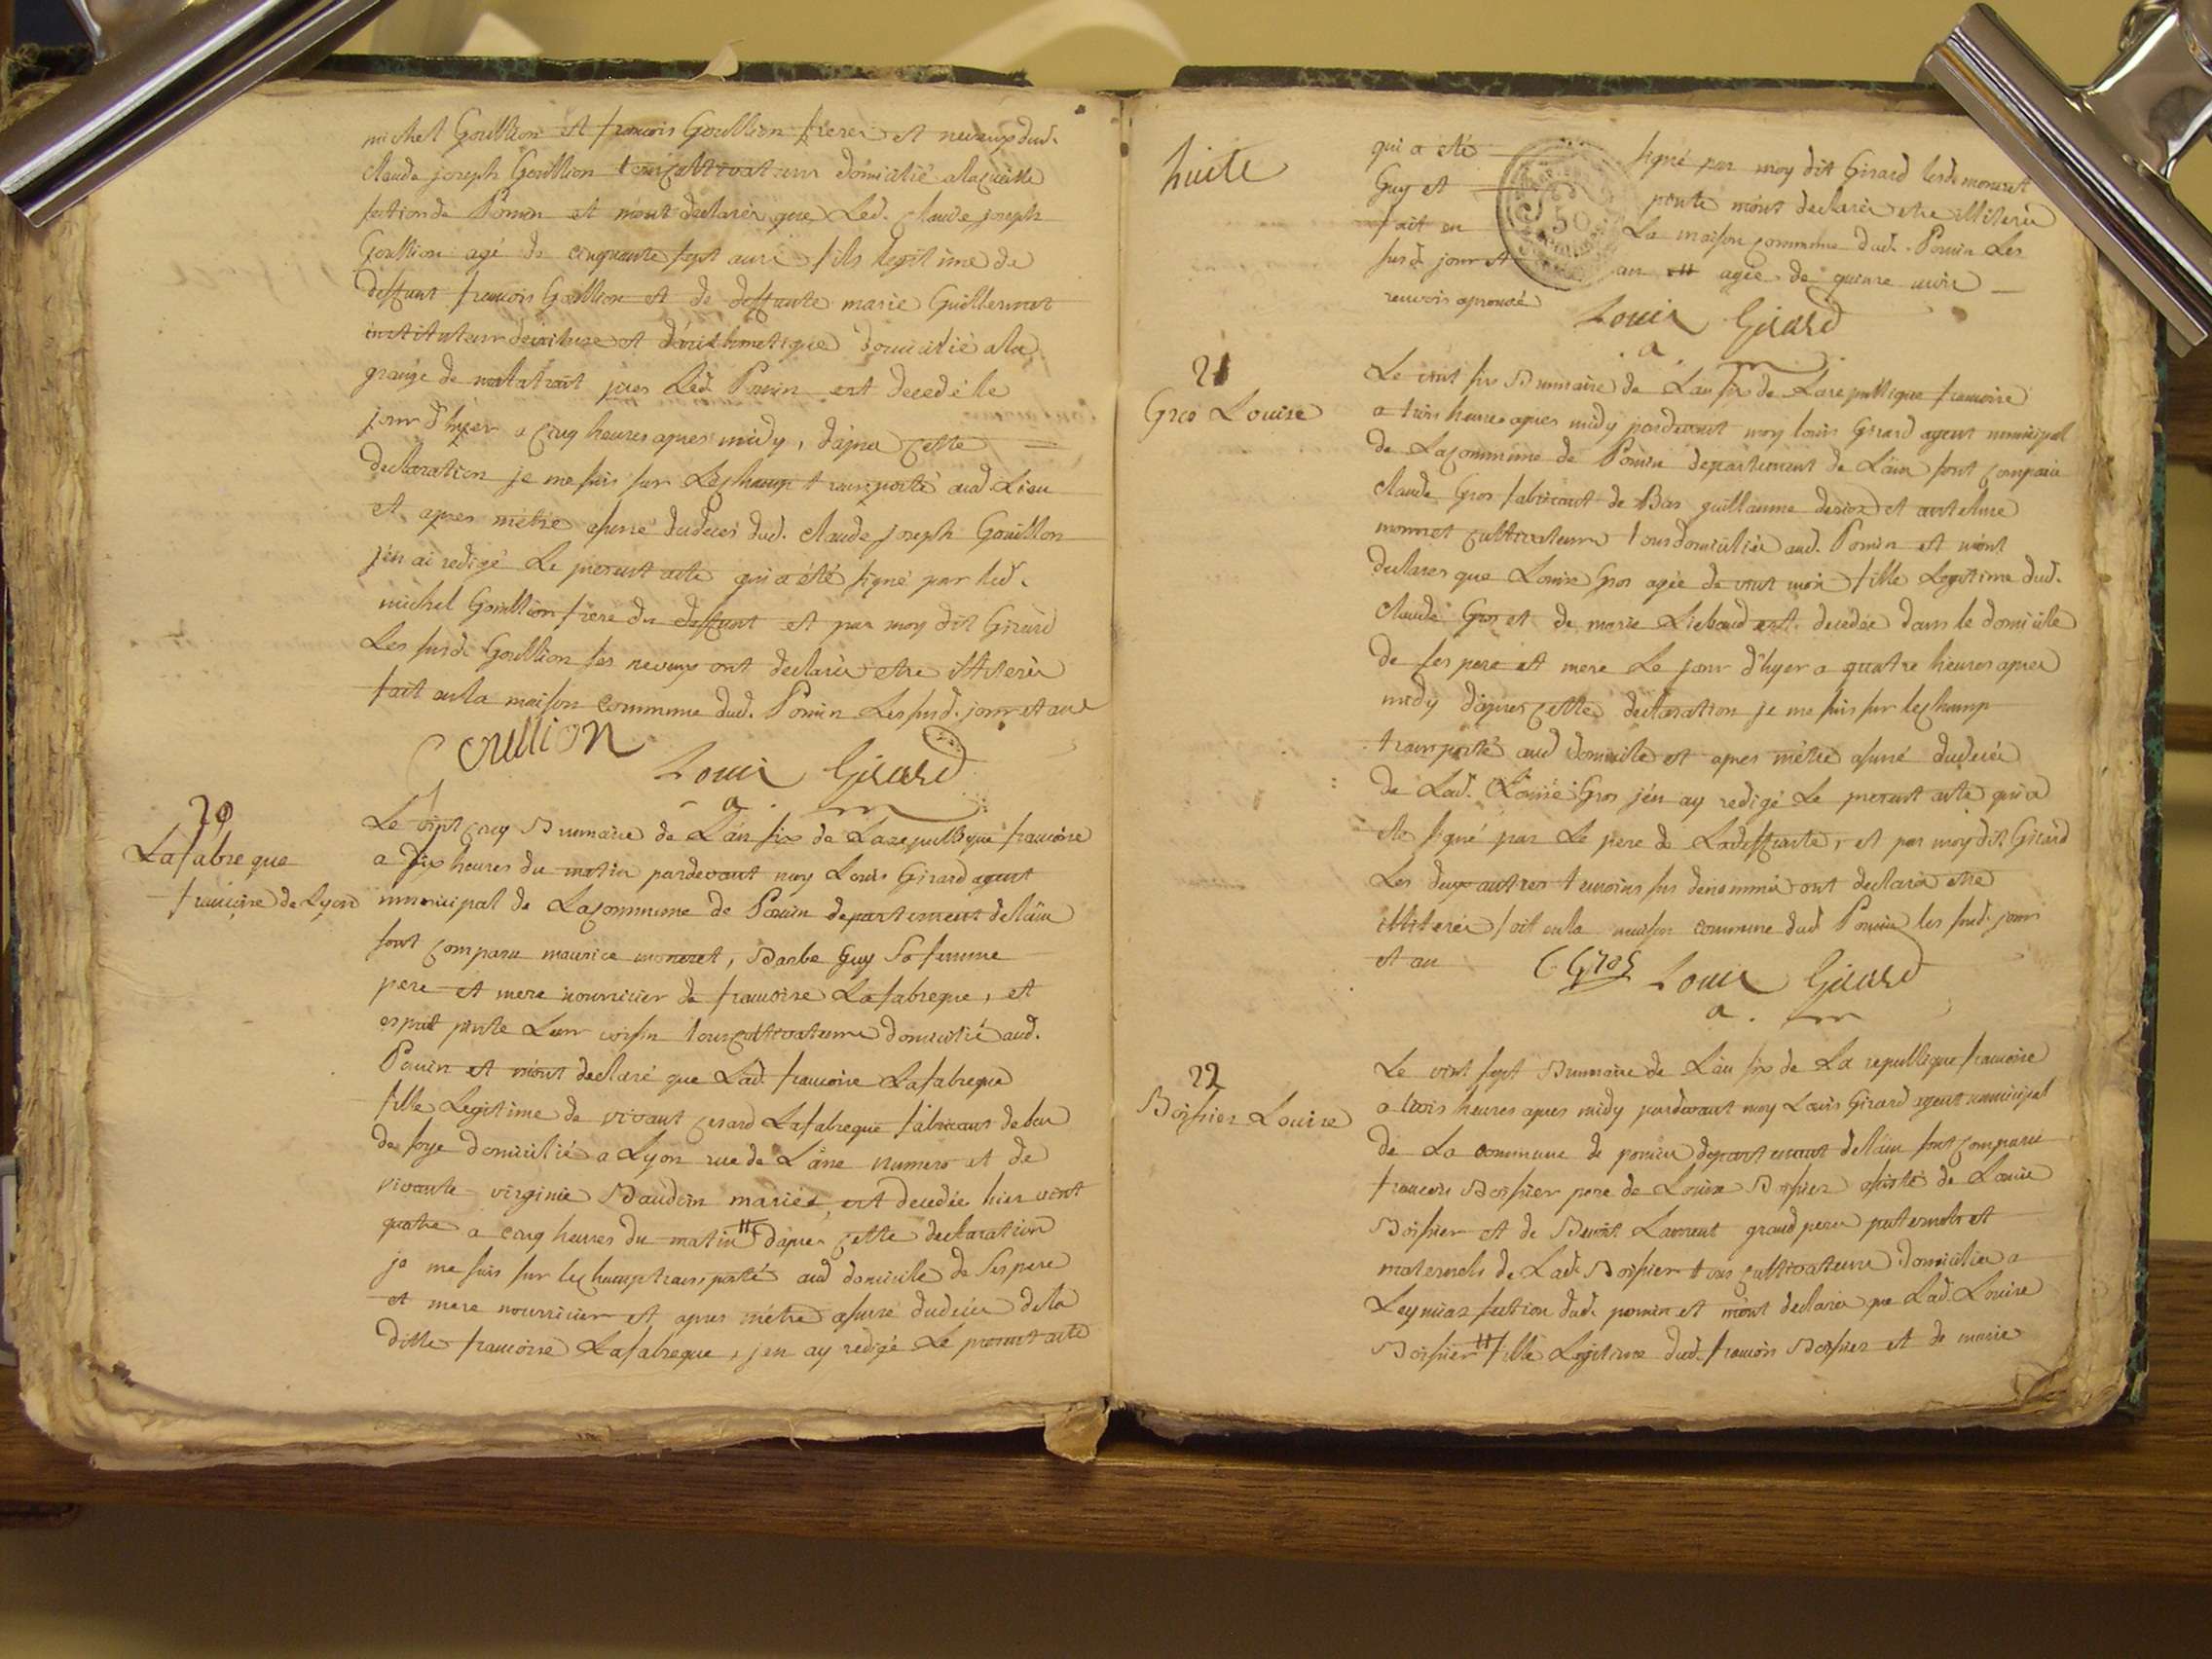 michel Goullion et francois Goullion freres et neveux dud.
claude joseph Goullion tous cultivateurs domicilié a la cueille
section de Poncin et m'ont declarés que Led. claude joseph
Goullion agé de cinquante sept ans fils legitime de
deffunt francois Goullion et de deffunte marie Guillermet
instituteur decriture et d'arithmetique domicilié a la
grange de malatrait pres Led. Poncin est decedé le
jour d'hyer a cinq heures apres midy, d'apres cette
declaration je me suis sur Lechamp transporté aud. Lieu
et apres m'etre assuré du deces dud. claude joseph Gouillon
j'en ai redigé Le present acte qui a été signé par led.
michel Goullion frere du deffunt et par moy dit Girard
Les susds Goullion ses neveux ont declarés etre illiterés
fait en la maison commune dud. Poncin Les susd. jour et an
Goullion
Louis Girard
a. m
20
Lafabreque
francoise de Lyon
Le vint cinq Brumaire de L'an six de La republique francoise
a dix heures du matin pardevant moy Louis Girard agent
municipal de La commune de Poncin departement de l'ain
sont comparu maurice moneret, Barbe Guy Sa femme
pere et mere nourricier de francoise Lafabreque, et
esprit pinte Leur voisin tous cultivateurs domicilié aud.
Poncin et m'ont declaré que Lad. francoise Lafabreque
fille Legitime de vivant gerard Lafabreque fabricant de bas
de soye domicilié a Lyon rue de L'ane numero et de
vivante virginie Baudoin mariés, est decedée hier vint
quatre a cinq heures du matin # d'apres cette declaration
je me suis sur lechamp transporté aud domicile de Ses pere
et mere nourricier et apres m'etre assuré du deces de la
ditte francoise Lafabreque, j'en ay redigé Le present acte
huite
qui a eté signé par moy dit Girard lesds moneret
Guy et pinte m'ont declarés etre illiterés
fait en La maison commune dud. Poncin Les
susd. jour et an # agée de quinze mois
renvois aprouvé
50
Louis Girard
a. m
21
Gros Louise
Le vint six Brumaire de L'an six de La republique francoise
a trois heures apres midy pardevant moy louis Girard agent municipal
de La commune de Poncin departement de L'ain sont comparu
claude Gros fabricant de Bas guillaume derioz et antelme
monnet cultivateurs tous domiciliés aud. Poncin et m'ont
declares que Louise Gros agée de vint mois fille Legitime dud.
claude Gros et de marie Liebaud est decedée dans le domicille
de ses pere et mere Le jour d'hyer a quatre heures apres
midy d'apres cette declaration je me suis sur lechamp
transporté aud domicille et apres m'etre assuré du deces
de Lad. Louise Gros j'en ay redigé Le present acte qui a
ete signé par Le pere de La deffunte, et par moy dit Girard
Les deux autres temoins sus denommés ont declarés etre
illiterés fait en la maison commune dud Poncin les susd. jours
et an
C Gros
Louis Girard
a. m
22
Boissier Louise
Le vint sept Brumaire de L'an six de La republique francoise
a trois heures apres midy pardevant moy Louis Girard agent municipal
de La commune de poncin departement de l'ain sont comparu
francois Boissier pere de Louise Boissier assisté de Louis
Boissier et de Benoit Laurent grand peres paternels et
maternels de Lad. Boissier tous cultivateurs domiciliés a
Leymiaz section dud. poncin et m'ont declarés que Lad. Louise
Boissier # fille Legitime dud. francois Boissier et de marie